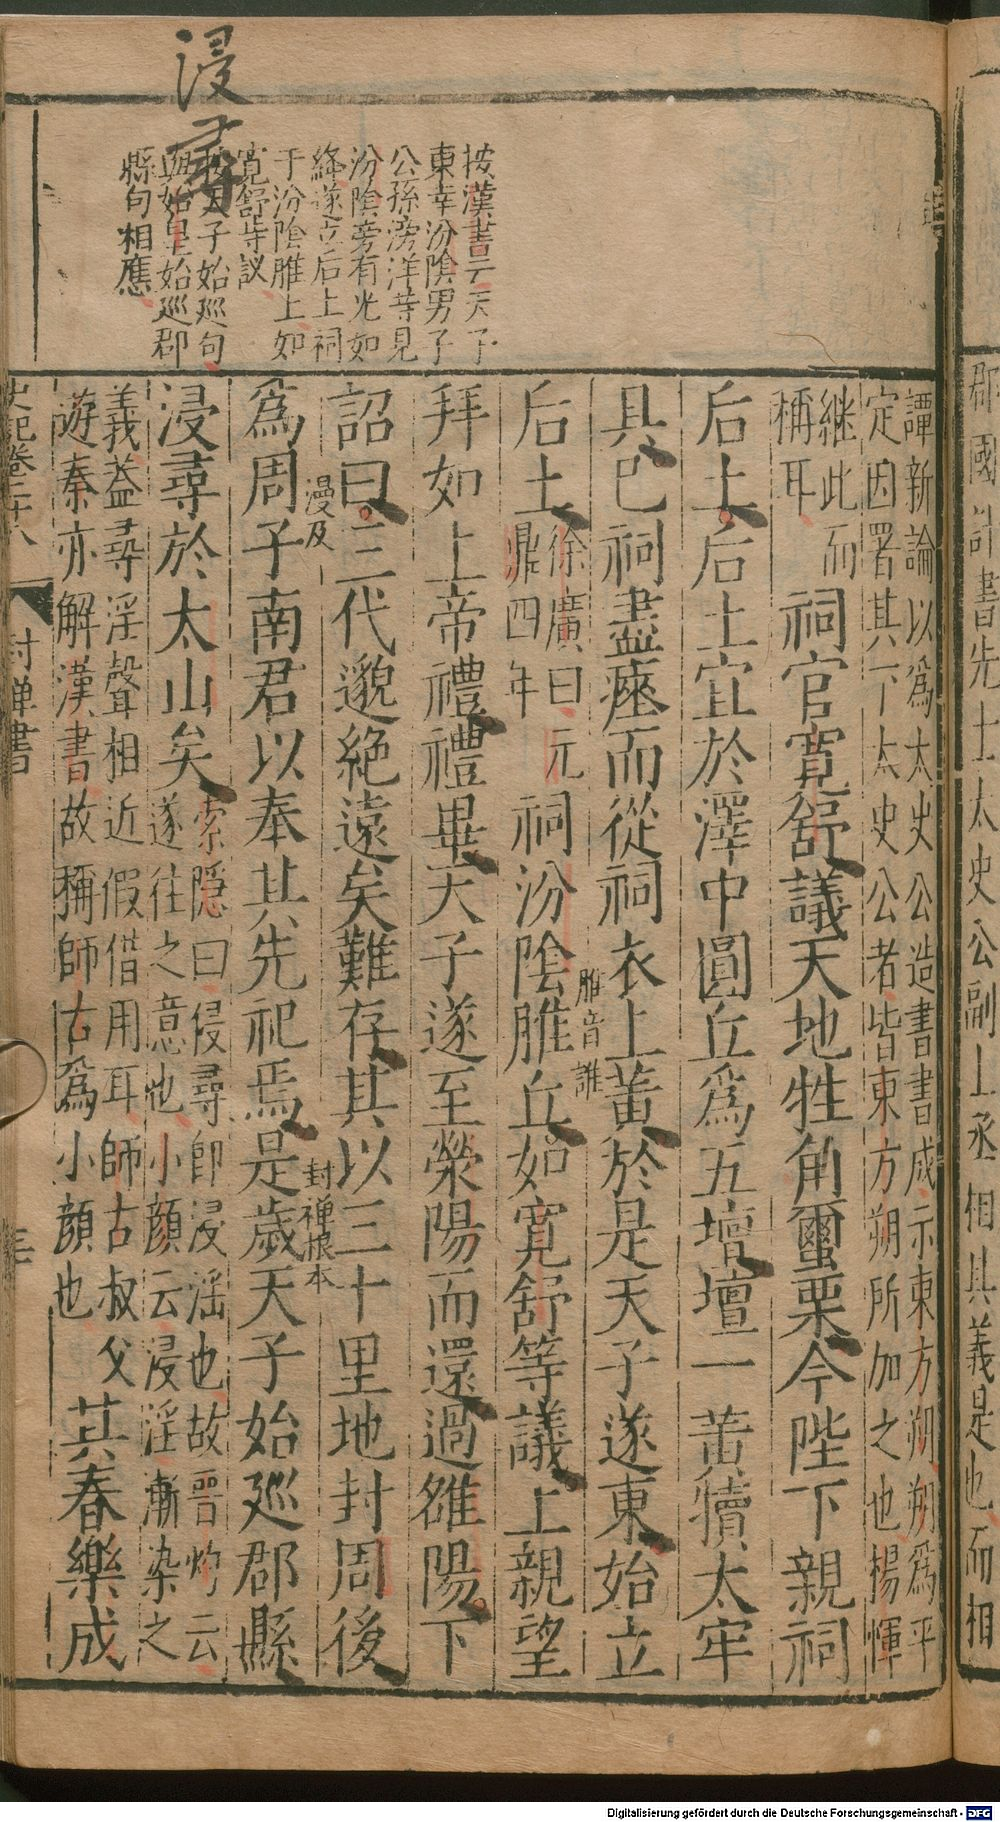 浸尋
按漢書云天子
東幸汾陰男子
公孫滂洋等見
汾陰旁有光如
絳遂立后土祠
于汾陰脽上如
寬舒等議
按天子始巡句
與始皇始巡郡
縣句相應
譚新論以爲太史公造書書成示東方朔朔爲平
定因署其下太史公者皆東方朔所加之也楊惲
繼此而
稱耳
祠官寬舒議天地牲角璽栗今陛下親祠
后土后土宜於澤中圓丘爲五壇壇一黃犢太牢
具已祠盡瘞而從祠衣上黃於是天子遂東始立
后土
徐廣曰元
鼎四年
祠汾陰脽丘如寬舒等議上親望
脽音誰
拜如上帝禮禮畢天子遂至滎陽而還過雒陽下
詔曰三代邈絶遠矣難存其以三十里地封周後
漫及
封禅根本
爲周子南君以奉其先祀焉是歲天子始巡郡縣
浸尋於太山矣
索隱曰侵尋即浸淫也故晉灼云
遂往之意也小顔云浸淫漸染之
義蓋尋淫聲相近假借用耳師古叔父
遊秦亦解漢書故稱師古爲小顔也
其春樂成
史記卷二十八
封禅書
郡國計書先上太史公副上丞相其義是也而相
Digitalisierung gefördert durch die Deutsche Forschungsgemeinschaft - DFG